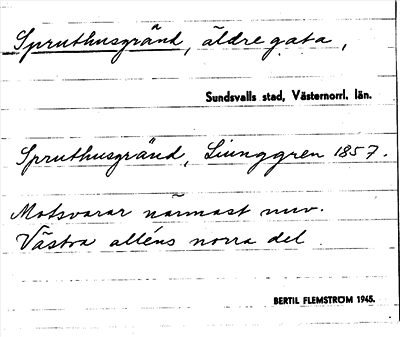 Spruthusgränd, äldre gata,
Sundsvalls stad, Västernorrl. län.
Spruthusgränd, Ljunggren 1857.
Motsvarar närmast nuv.
Västra alléns norra del.
BERTIL FLEMSTRÖM 1945.